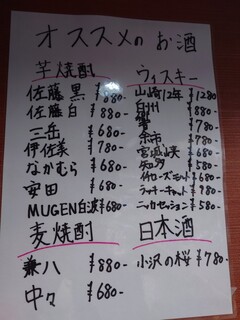 オススメのお酒
芋焼酎
佐藤 黒 ¥880-
佐藤 白 ¥880-
三岳 ¥680-
伊佐美 ¥780-
なかむら ¥680-
安田 ¥680-
MUGEN白波 ¥680-
麦焼酎
兼八 ¥880-
中々 ¥680-
ウィスキー
山崎12年 ¥1280
白州 ¥880-
響 ¥780-
余市 ¥780-
宮城峡 ¥680-
知多 ¥580-
¥680-
ラッキーキャット ¥780-
ニッカセッション ¥580-
日本酒
小沢の桜 ¥780-